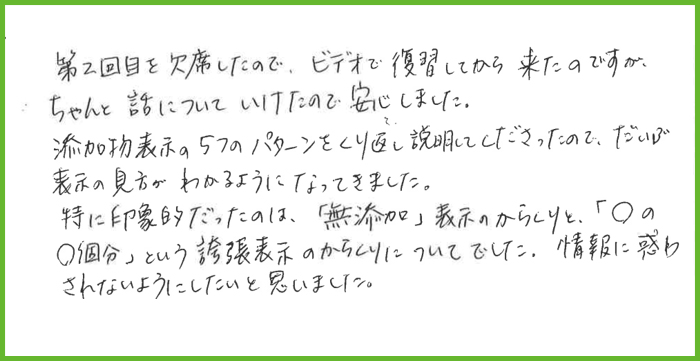 第2回目を欠席したので、ビデオで復習してから来たのですが、
ちゃんと話についていけたので安心しました。
添加物表示の5つのパターンをくり返し説明してくださったので、だいぶ
表示の見方がわかるようになってきました。
特に印象的だったのは、「無添加」表示のからくりと、「〇の
〇個分」という誇張表示のからくりについてでした。情報に惑わ
されないようにしたいと思いました。